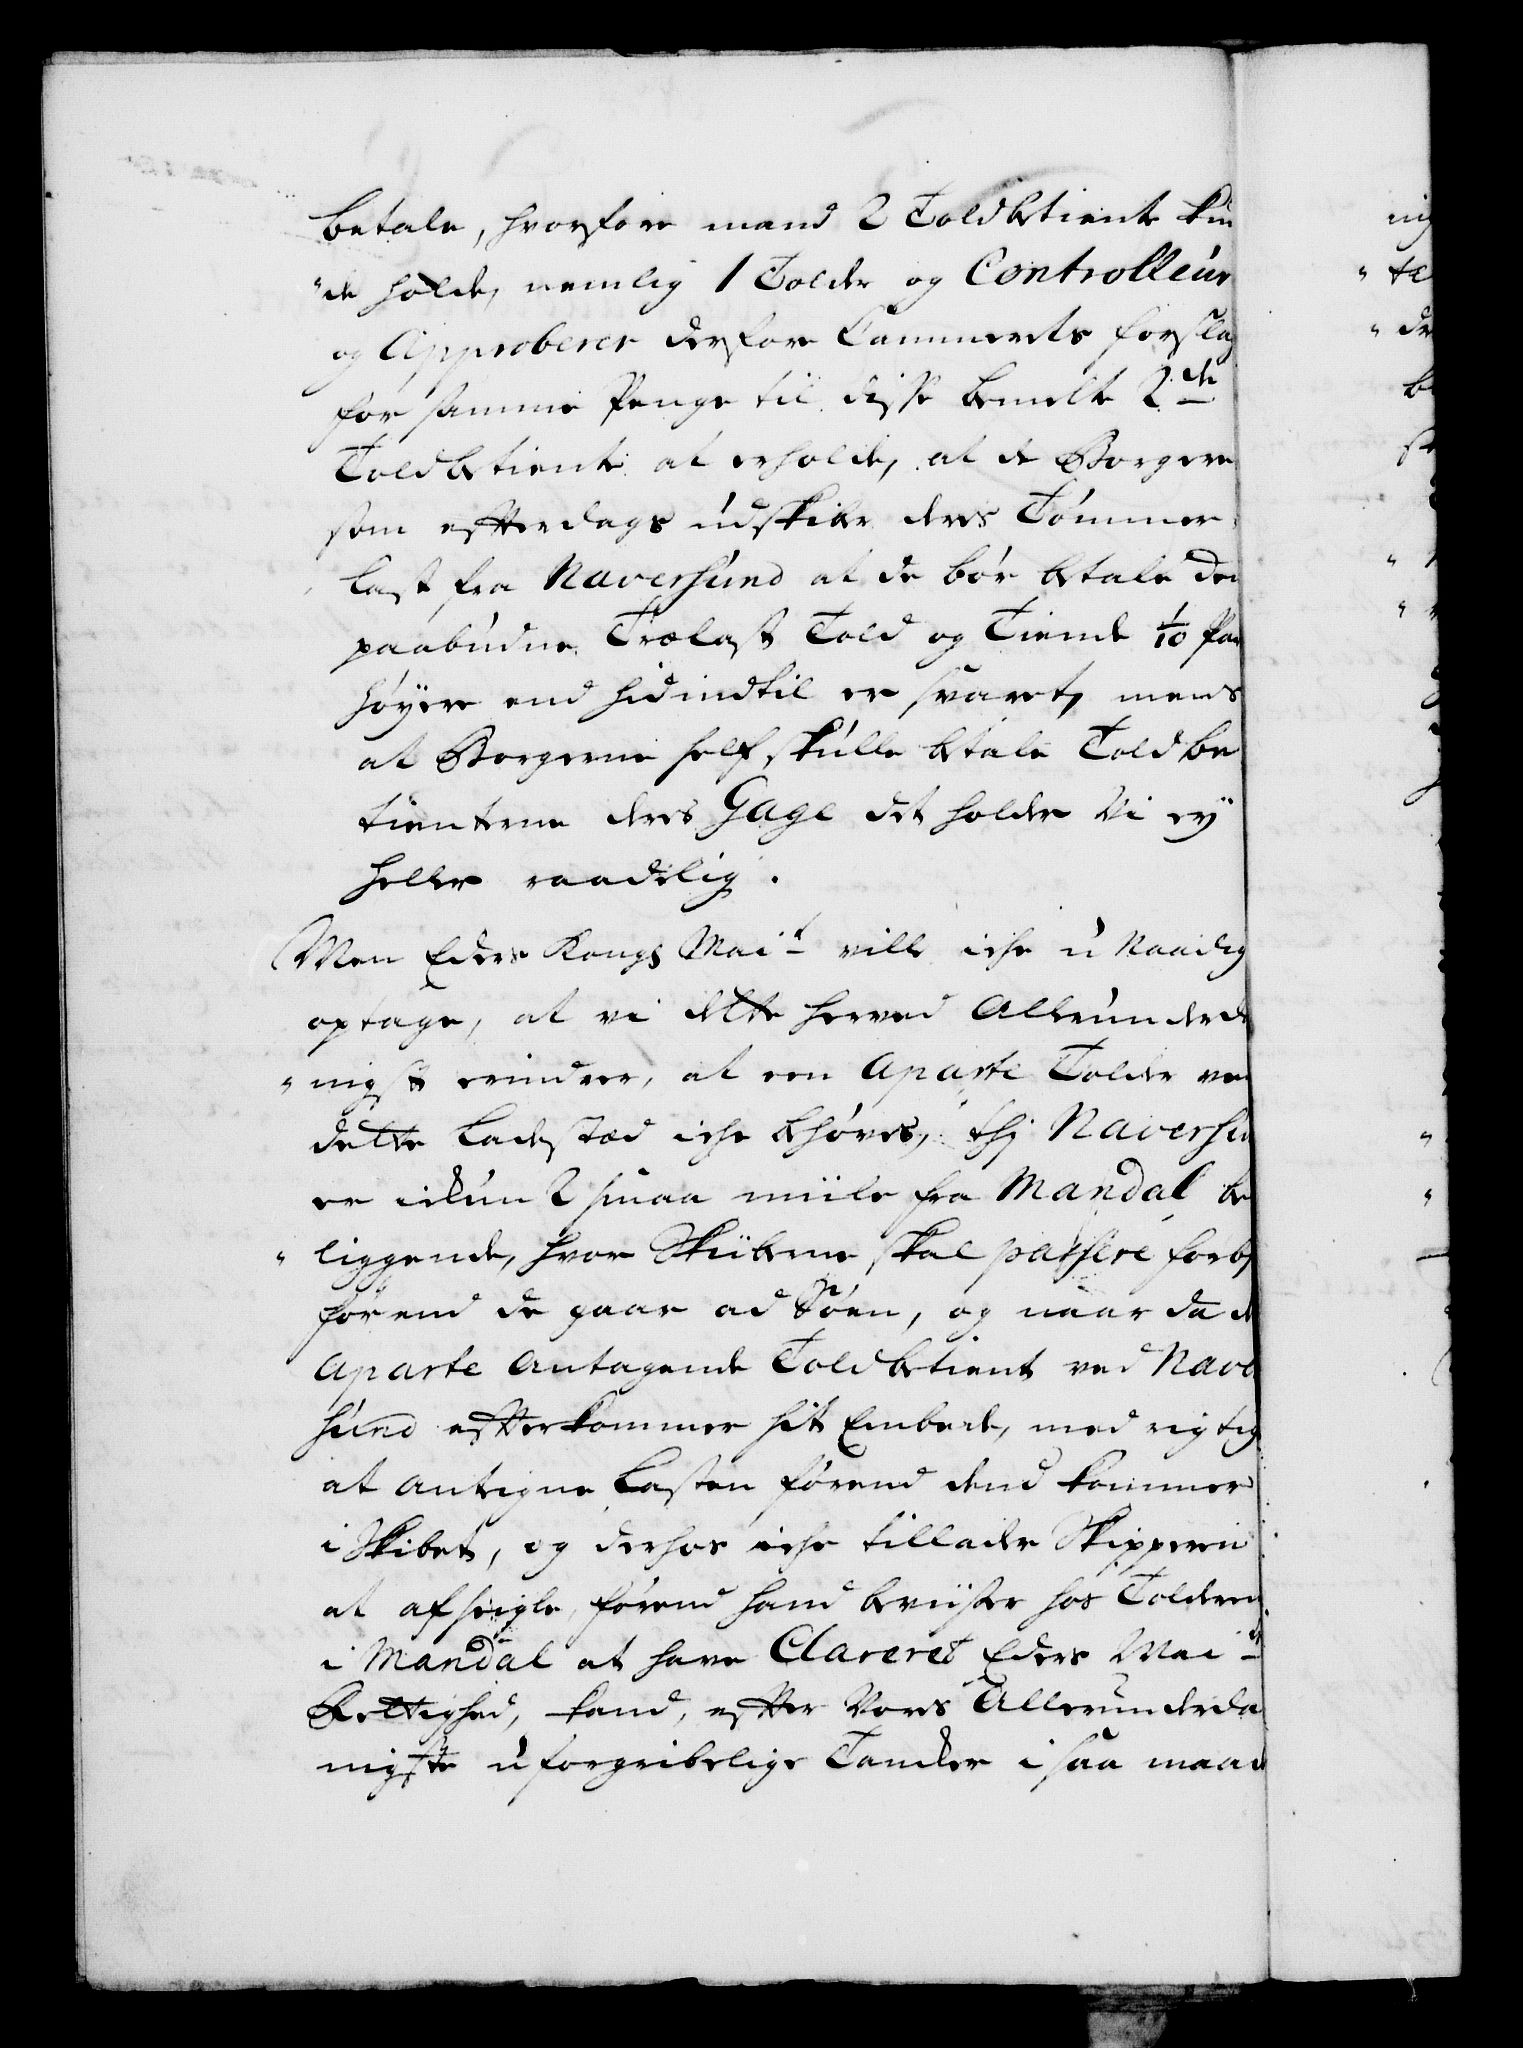 betale, hvorfore mand 2 Toldbetiente kun
"de holde, nemlig 1 Tolder og Controlleur
og Approberer derfore Cammerets forslag
for samme Penge til disse bemelte 2de
Toldbetiente at erholde, at de Borgere
som efterdags udskiber deres Tømmer
last fra Naversund at de bør betale den
paabudne Trælast Told og Tiende 1/10 Par
høyere end hidindtil er svaret, mens
at Borgerne self skulle betale Toldbe
tienterne deres Gage det holder Vi ey
heller raadelig.
Men Eders Kongs Mait ville iche unaadig
optage, at vi dette herved Allerunderda
"nigst erindrer, at een aparte Tolder ved
dette Ladestæd iche behøves, thj Naversun
er ickun 2 smaa miile fra Mandal be
"liggende, hvor Skiiberne skal passere forbj
førend de gaar ad Søen, og naar da de
aparte Antagende Toldbetient ved Naver
sund efterkommer sit Embede, med rigtig
at antegne Lasten førend dend kommer
i Skibet, og derhos iche tillader Skipperen
at afseigle, førend hand beviiser hos Tolderen
i Mandal at have Clareret Eders Maits
Rettighed, kand, efter Vores Allerunderda
nigste uforgribelige Tancker i saa maade